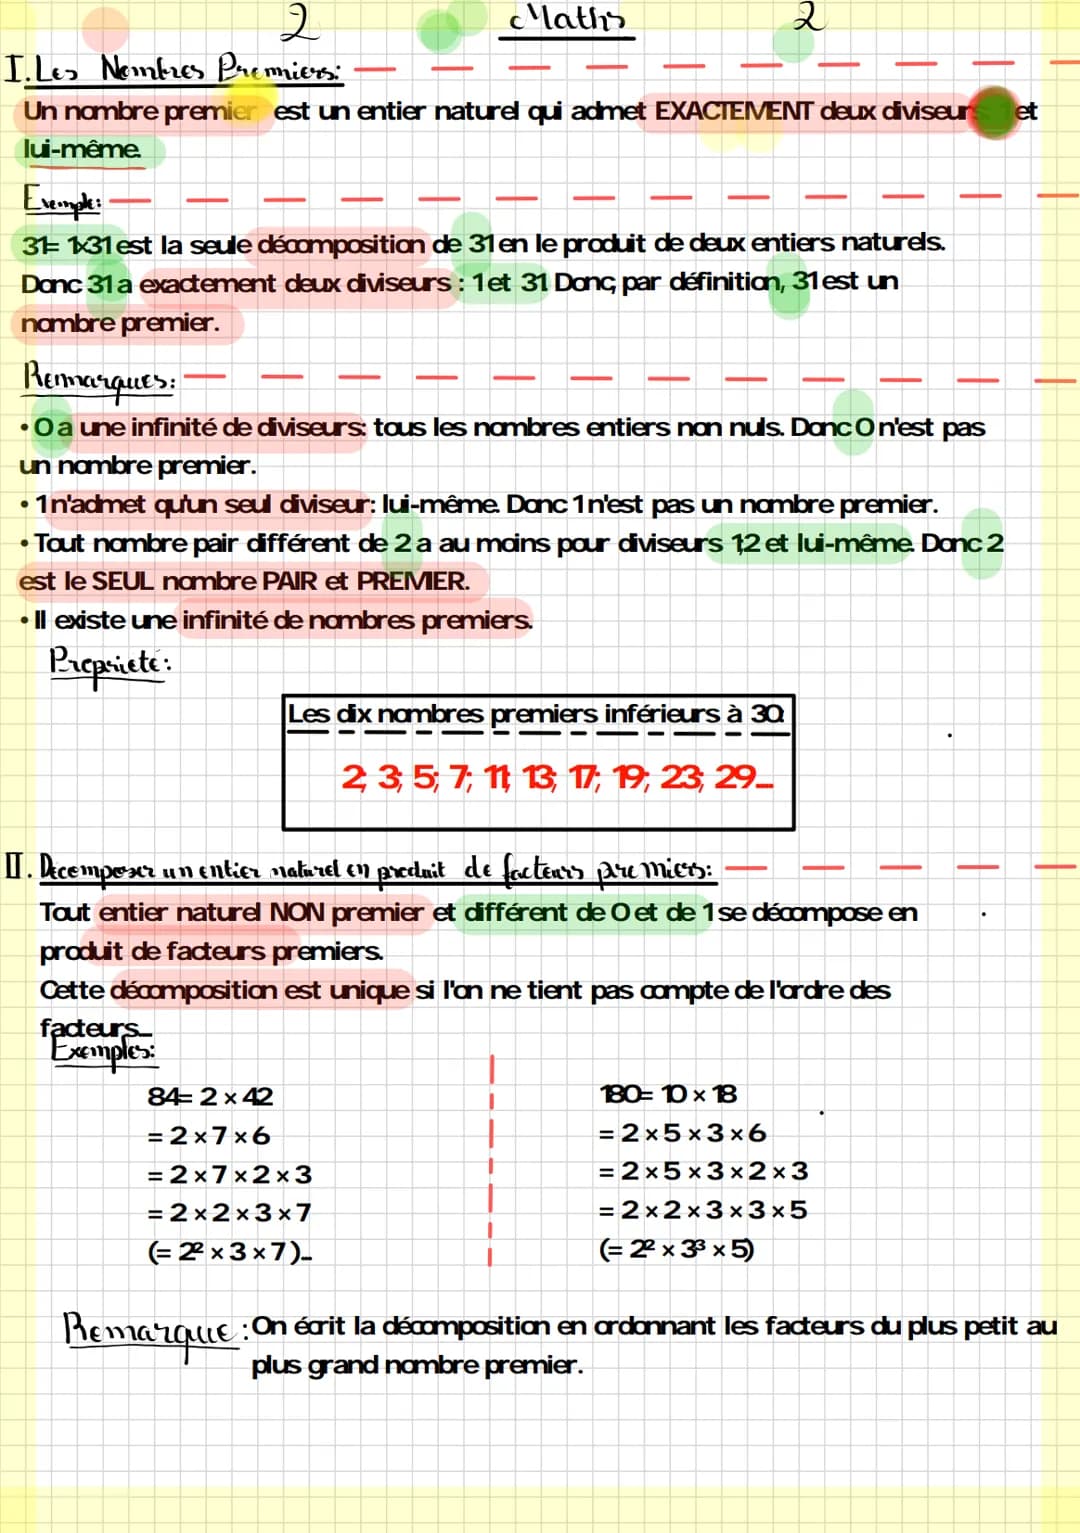 2 Maths 2
I. Les Nombres Premiers:
Un nombre premier est un entier naturel qui admet EXACTEMENT deux diviseurs: 1 et
lui-même.
Exemple:
31= 1x31 est la seule décomposition de 31 en le produit de deux entiers naturels.
Donc 31 a exactement deux diviseurs : 1 et 31. Donc, par définition, 31 est un
nombre premier.
Remarques:
• 0 a une infinité de diviseurs: tous les nombres entiers non nuls. Donc 0 n'est pas
un nombre premier.
• 1 n'admet qu'un seul diviseur: lui-même. Donc 1 n'est pas un nombre premier.
• Tout nombre pair différent de 2 a au moins pour diviseurs 1,2 et lui-même. Donc 2
est le SEUL nombre PAIR et PREMIER.
• Il existe une infinité de nombres premiers.
Propriété:
Les dix nombres premiers inférieurs à 30:
2; 3; 5; 7; 11; 13; 17; 19; 23; 29...
II. Décomposer un entier naturel en produit de facteurs premiers:
Tout entier naturel NON premier et différent de 0 et de 1 se décompose en
produit de facteurs premiers.
Cette décomposition est unique si l'on ne tient pas compte de l'ordre des
facteurs...
Exemples:
84= 2 x 42
= 2 x 7 x 6
= 2 x 7 x 2 x 3
= 2 x 2 x 3 x 7
(= 2² x 3 x 7)...
180= 10 x 18
= 2 x 5 x 3 x 6
= 2 x 5 x 3 x 2 x 3
= 2 x 2 x 3 x 3 x 5
(= 2² x 3³ x 5)
Remarque: On écrit la décomposition en ordonnant les facteurs du plus petit au
plus grand nombre premier.